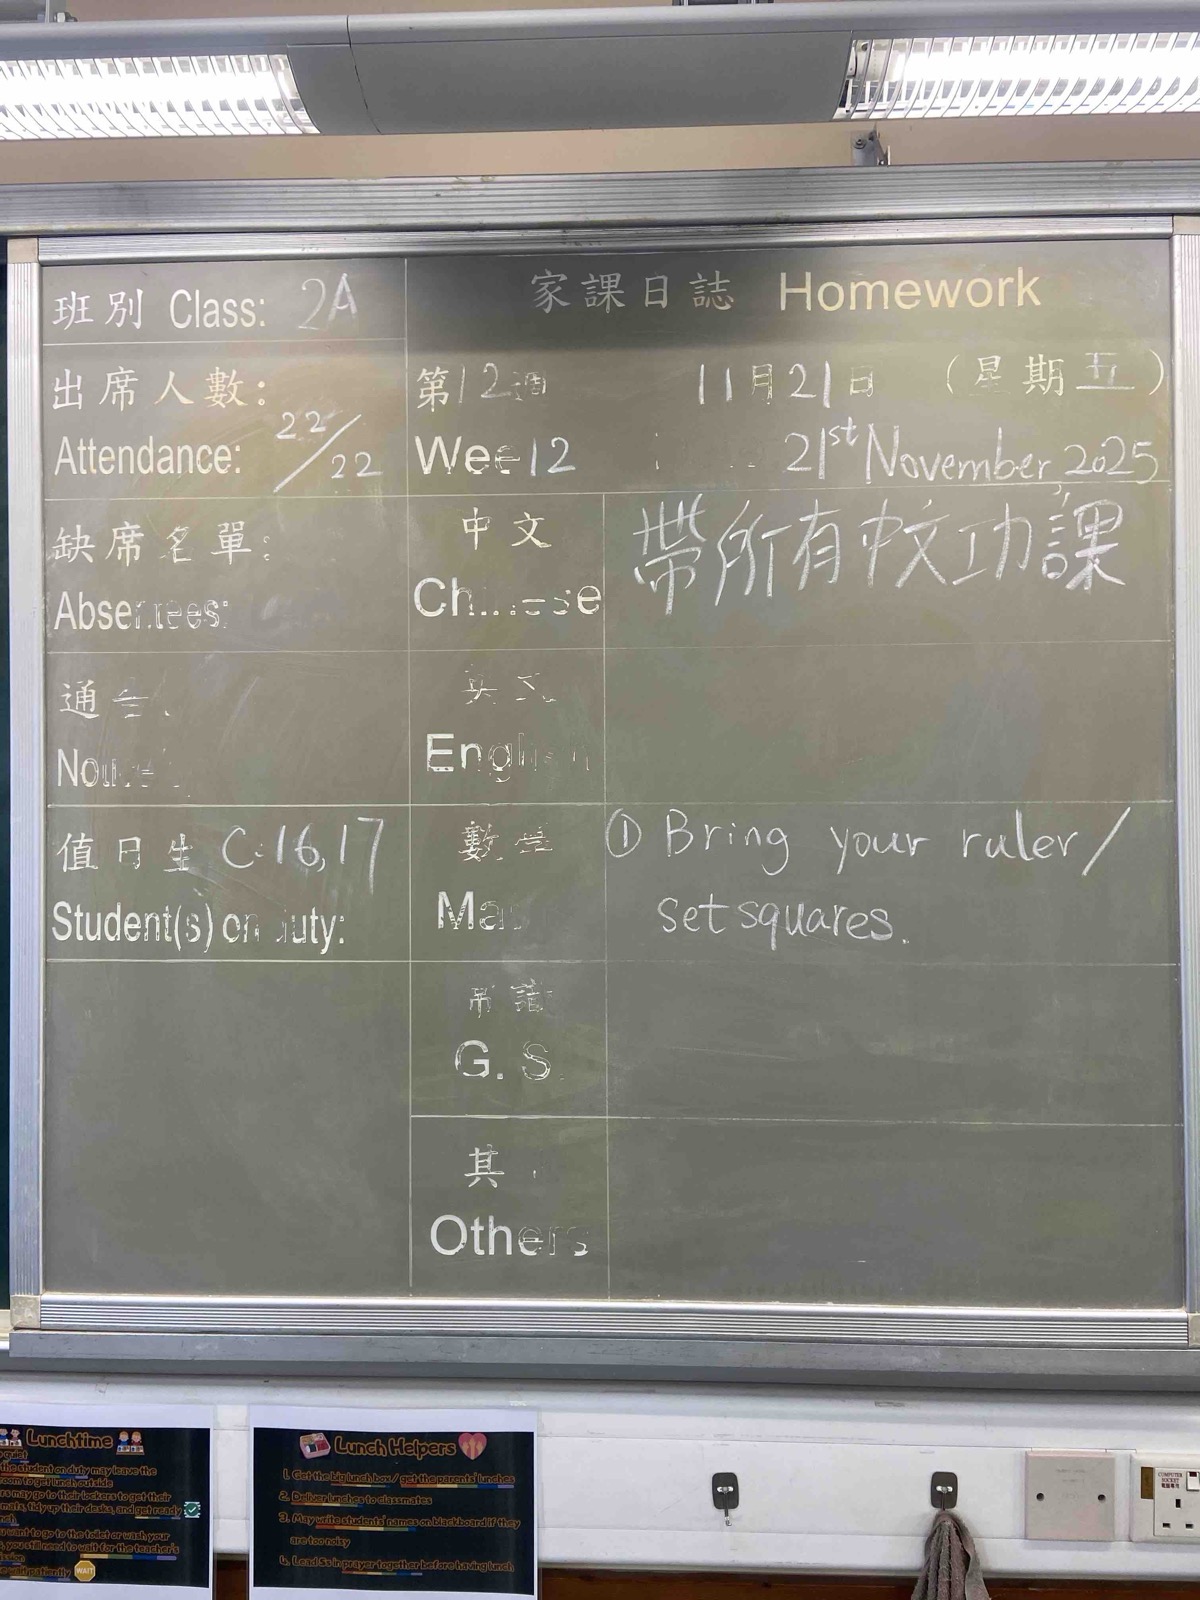 班別 Class: 2A
家課日誌 Homework
出席人數:
Attendance: 22/22
第12週 11月21日 (星期五)
Week 12 21st November, 2025
缺席名單:
Absentees:
中文
Chinese
帶所有中文功課
通告
Notice
英文
English
值日生 C: 16, 17
Student(s) on duty:
數學
Ma
① Bring your ruler/
set squares.
常識
G. S.
其
Others
Lunchtime
quiet
the student on duty may leave the
room to get lunch outside
rs may go to their lockers to get their
mats, tidy up their desks, and get ready
nch.
want to go to the toilet or wash your
s, you still need to wait for the teacher's
ission
wait patiently WAIT
Lunch Helpers
1. Get the big lunch box / get the parents' lunches
2. Deliver lunches to classmates
3. May write students' names on blackboard if they
are too noisy
4. Lead Ss in prayer together before having lunch
COMPUTER
SOCKET
電腦專用